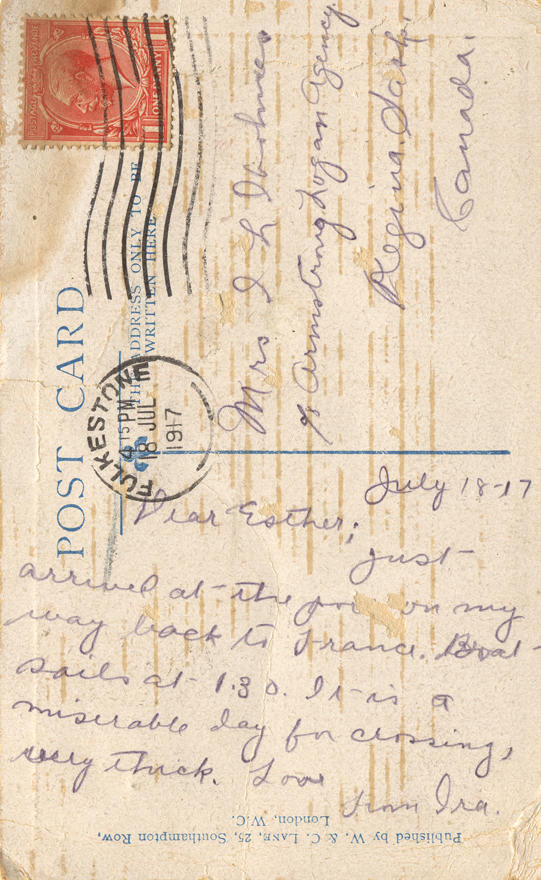 POST CARD
THE ADDRESS ONLY TO BE
WRITTEN HERE
ONE PENNY
FOLKESTONE
4 15 PM
18 JUL
1917
Mrs I L
℅ Armstrong Logan Agency
Regina. Sask.
Canada.
July 18-17
Dear Esther;
Just
arrived at the on my
way back to France. Boat
sails at 1.30. It is a
miserable day for crossing,
very thick. Love
from Ira.
Published by W. & C. LANE, 25, Southampton Row,
London, W.C.